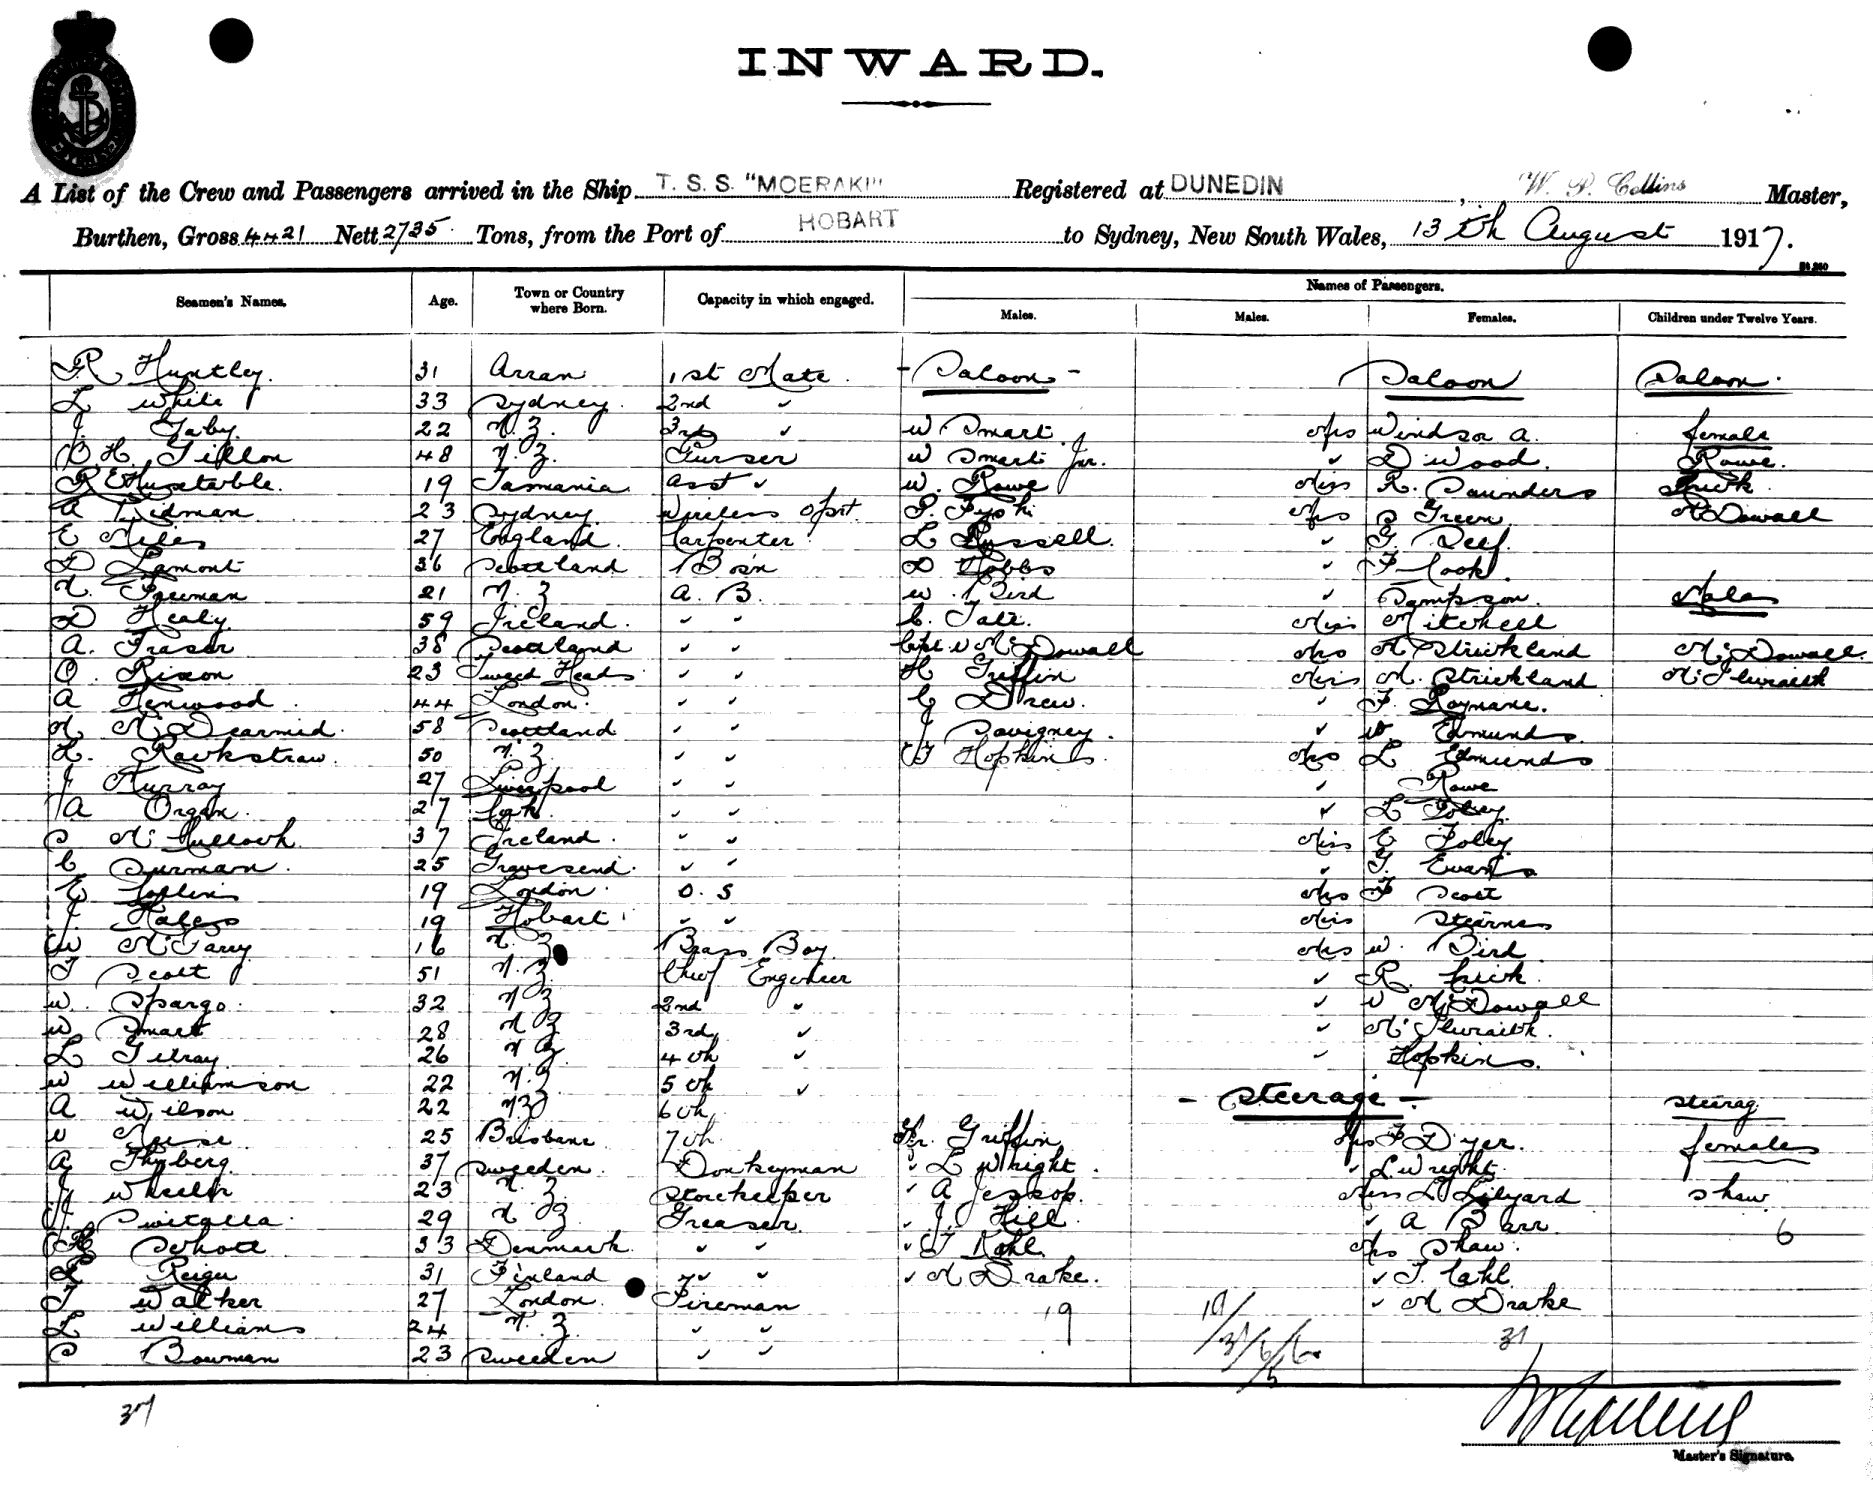 INWARD.
A List of the Crew and Passengers arrived in the Ship T. S. S. "MOERAKI" Registered at DUNEDIN, W. P. Collins Master,
Burthen, Gross 4421 Nett 2735 Tons, from the Port of HOBART to Sydney, New South Wales, 13th August 1917.
Names of Passengers.
Seamen's Names. Age. Town or Country where Born. Capacity in which engaged. Males. Males. Females. Children under Twelve Years.
R Huntley. 31 Arran 1st Mate - Saloon - Saloon Saloon.
L White 33 Sydney. 2nd ✓
J Gaby. 22 N.Z. 3rd ✓ W Smart Mrs Windsor A. female
H. Gillon 48 N.Z. Purser W Smart Jnr. ✓ D Wood. Rowe.
R E Huxtable. 19 Tasmania Asst ✓ W. Rowe Miss R. Saunders Frick
A Tidman 23 Sydney Wireless Oprt. P. Fysh Mrs S Green McDowall
E Miles 27 England. Carpenter L Russell. ✓ G.
D Lamont 36 Scottland Bosn D Hobbs ✓ F Cook.
Freeman 21 N.Z A. B. W. Bird ✓ Sampson. Males
D Healy. 59 Ireland. ✓ ✓ C. Tate. Miss Mitchell
A. Fraser 38 Scottland ✓ ✓ Capt. McDowall Mrs A Strickland McDowall
O. Rixon 23 Tweed Heads ✓ ✓ H Griffin Miss M. Strickland McIlwraith
A Henwood. 44 London. ✓ ✓ C Drew. ✓ F.
McDearmid. 58 Scottland ✓ ✓ J Savigney. ✓ W. Edmunds.
H. Rawkstraw. 50 N.Z ✓ ✓ Hopkins. Mrs L Edmunds
J Murray 27 Liverpool ✓ ✓ ✓ Rowe
A Organ. 27 Cork. ✓ ✓ ✓ L Foley.
S McCulloch. 37 Ireland. ✓ ✓ Miss E Foley
C Surman. 25 Gravesend. ✓ ✓ ✓ G. Evans
E Joplin 19 London. O. S Mrs F Scott
J. Hales 19 Hobart ✓ ✓ Miss Stearnes
W McGarry 16 N.Z Brass Boy. Mrs W. Bird.
T Scott 51 N.Z. Chief Engineer ✓ R. Frick.
W. Spargo. 32 N Z 2nd ✓ ✓ McDowall
W Smart 28 N Z 3rd ✓ ✓ McIlwraith.
L Gilray. 26 N Z 4th ✓ ✓ Hopkins.
W Williamson 22 N.Z 5th ✓ - Steerage - Steerag
A Wilson 22 NZ 6th
25 Brisbane 7th Mr. Griffin Mrs F Dyer. females
A Thyberg. 37 Sweeden. Donkeyman ✓ L Wright. ✓ L Wright.
J Wheeler 23 N.Z. Storekeeper ✓ A Jessop. Miss L Lilyard Shaw
J. Switalla. 29 N Z Greaser. ✓ J. Hill. ✓ A Barr 6
Schott 33 Denmark. ✓ ✓ ✓ Kahl. Mrs Shaw.
Reiger 31 Finland ✓ ✓ ✓ M Drake. ✓ T. Kahl.
T Walker 27 London. Fireman 19 19/31/6/6 ✓ M Drake
L Williams 24 N.Z. ✓ ✓ 31
S Bowman 23 Sweeden ✓ ✓
37
Master's Signature.